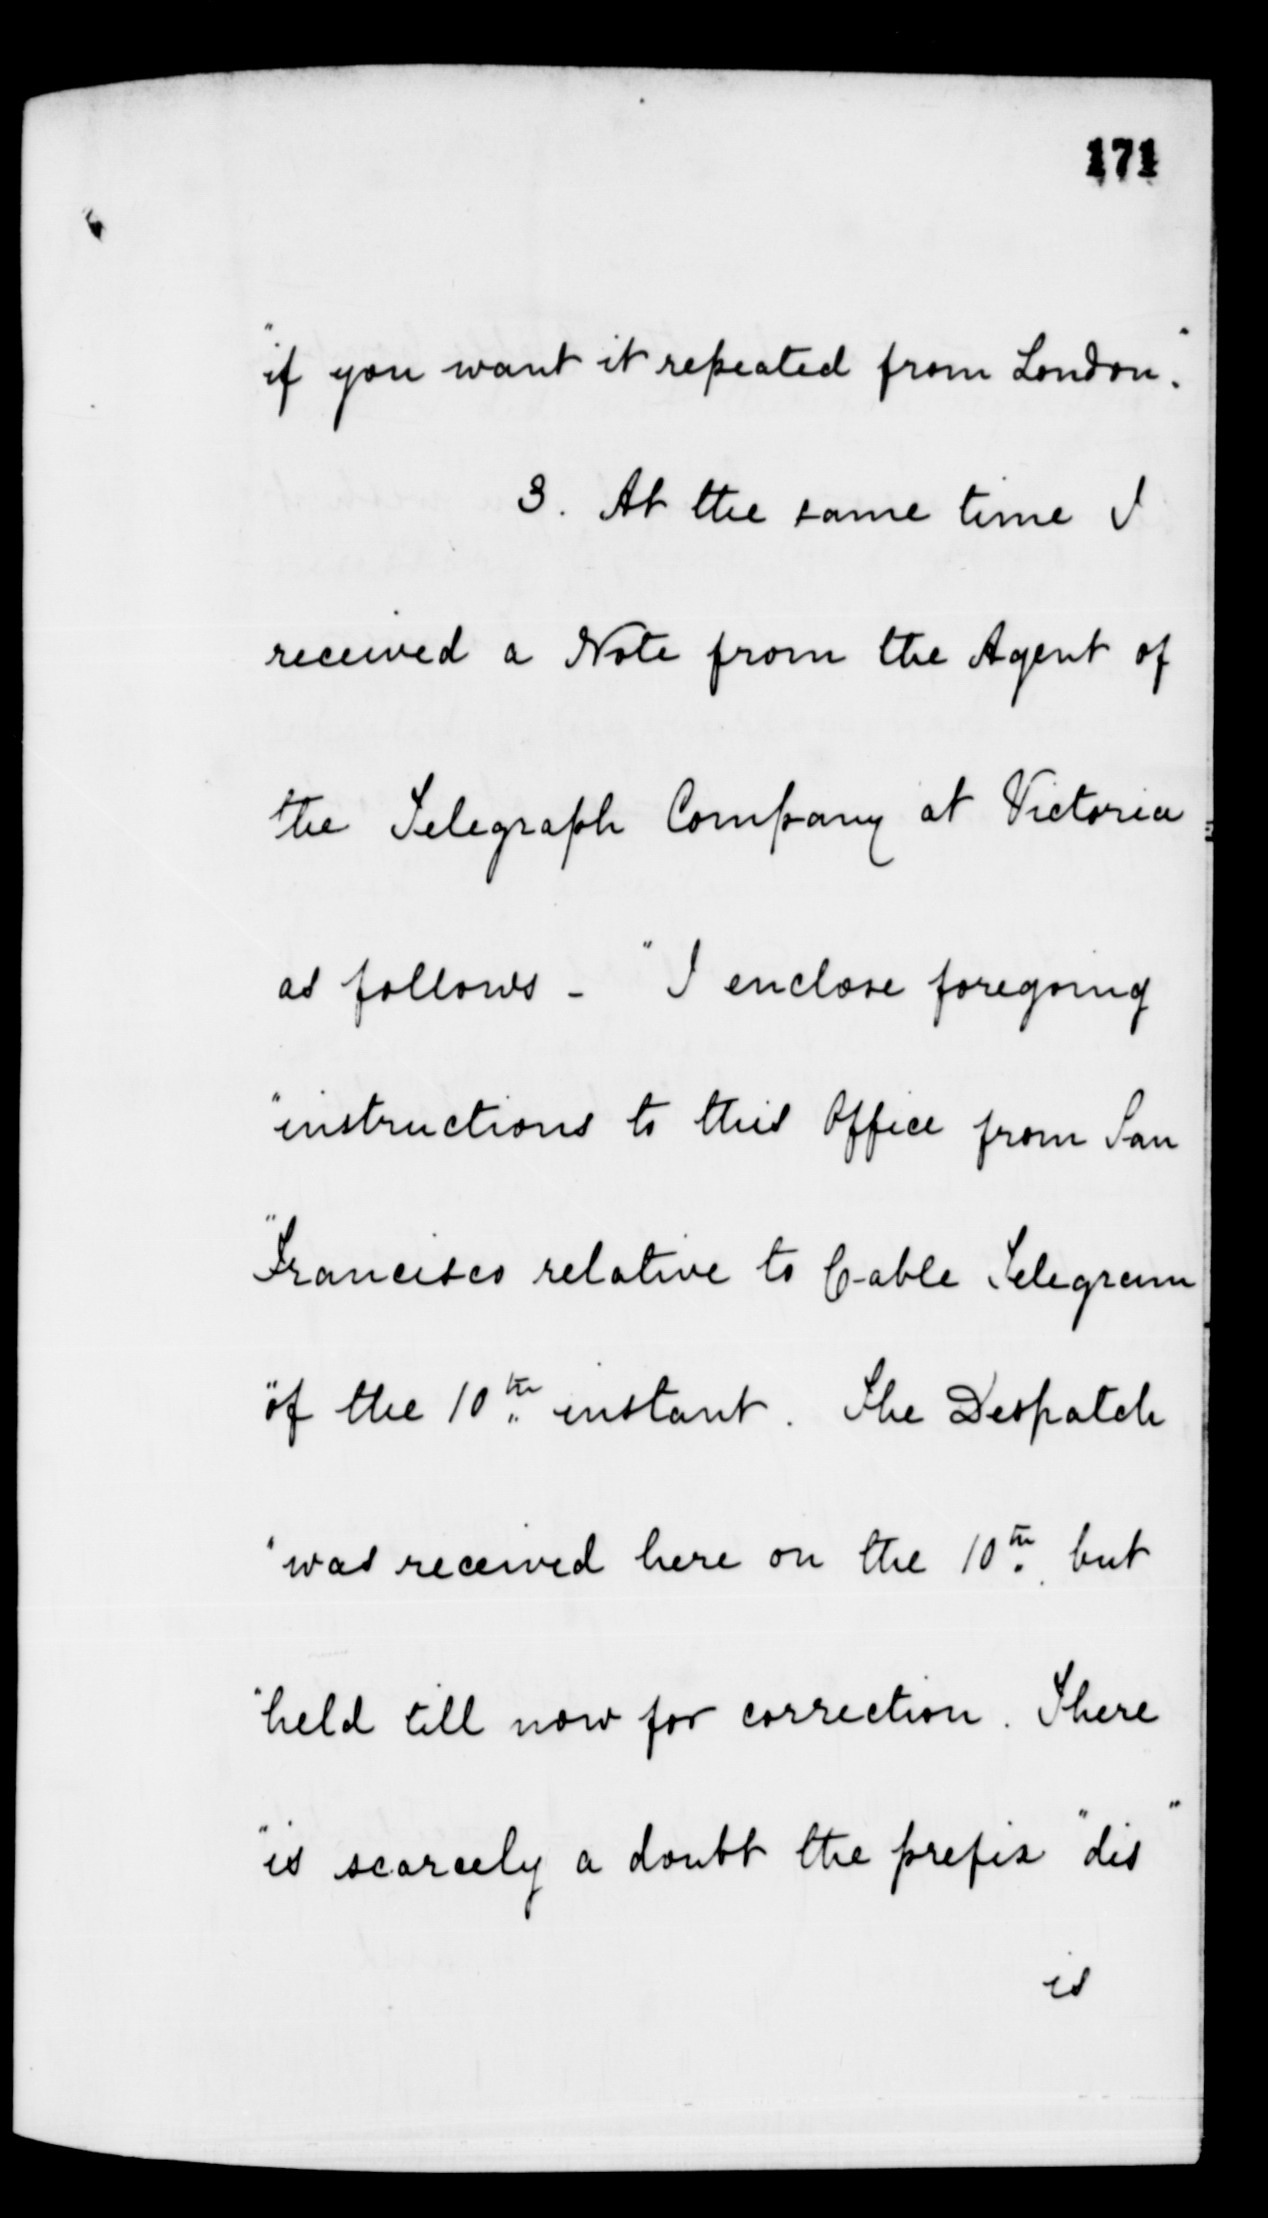 171
"if you want it repeated from London."
3. At the same time I
received a Note from the Agent of
the Telegraph Company at Victoria
as follows - "I enclose foregoing
"instructions to this Office from San
"Francisco relative to Cable Telegram
"of the 10th instant. The Despatch
"was received here on the 10th but
"held till now for correction. There
"is scarcely a doubt the prefix "dis"
is